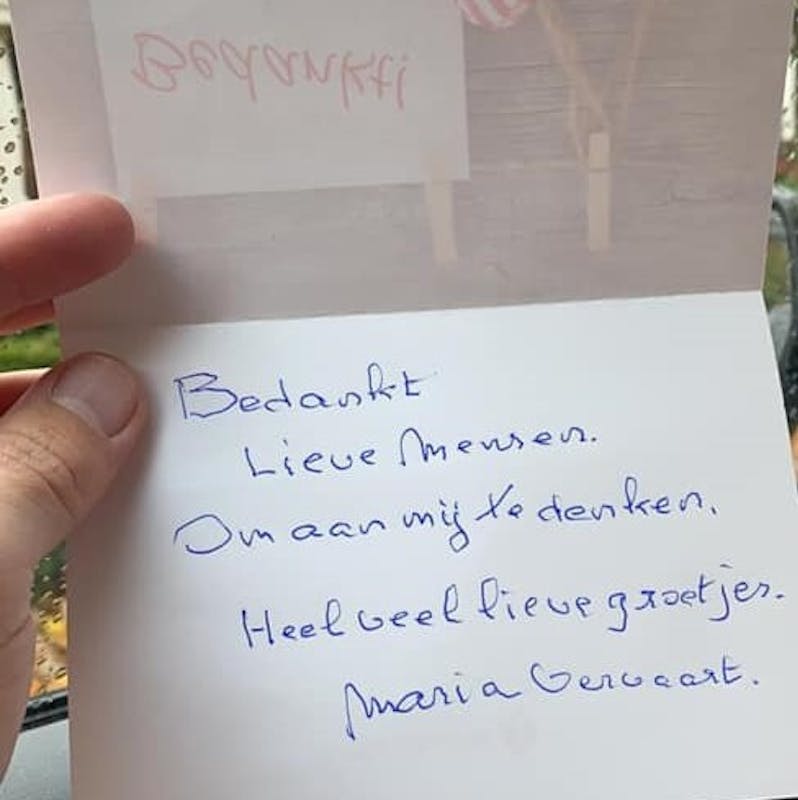 Bedankt!
Bedankt
Lieve Mensen.
Om aan mij te denken.
Heel veel lieve groetjes.
Maria Vervaart.